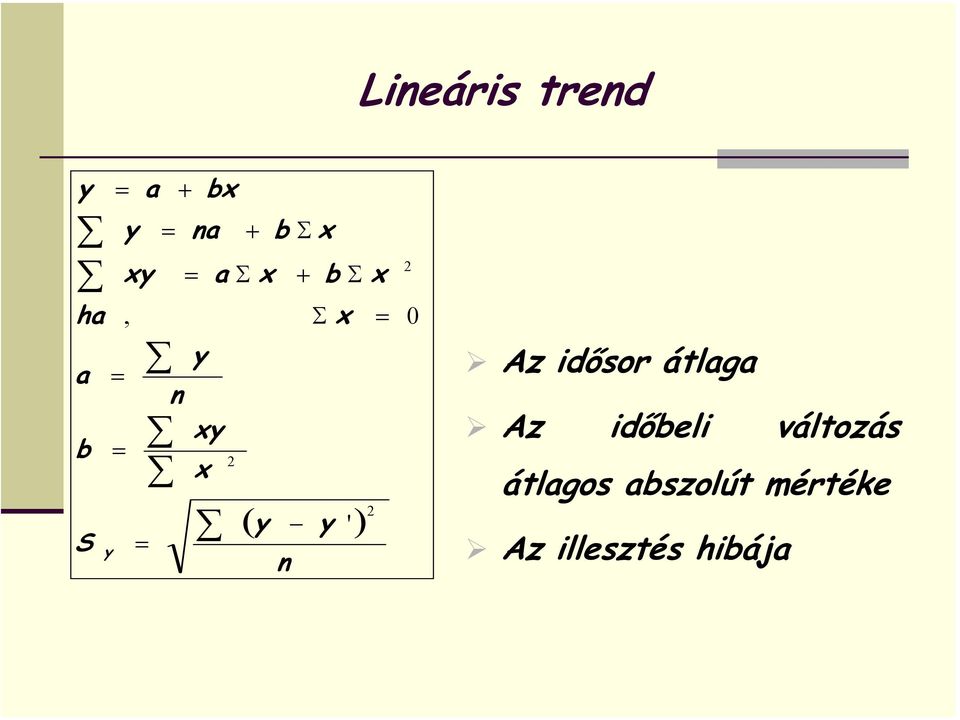 Lineáris trend
y = a + bx
∑ y = na + b Σ x
∑ xy = a Σ x + b Σ x ²
ha , Σ x = 0
a = ∑ y / n
b = ∑ xy / ∑ x ²
S y = √ ∑ (y − y ')² / n
➢ Az idősor átlaga
➢ Az időbeli változás
átlagos abszolút mértéke
➢ Az illesztés hibája